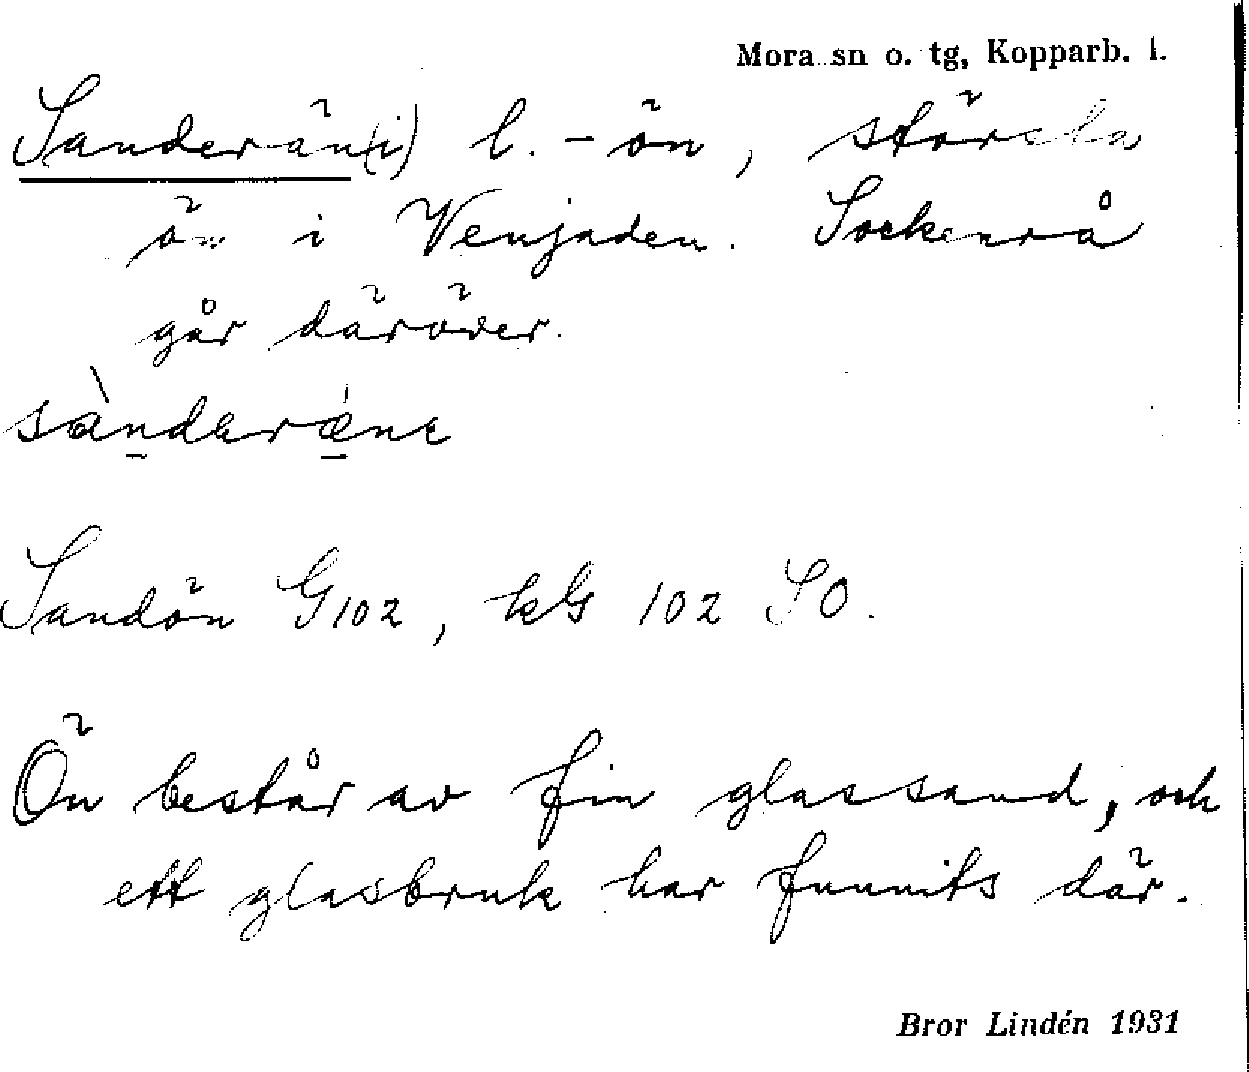 Mora sn o. tg, Kopparb. l.
Sanderän(i) l. -ön, största
ön i Venjaden. Sockenrå
går däröver.
sàndəræ̀nɛ
Sandön G102, kG 102 SO.
Ön består av fin glassand, och
ett glasbruk har funnits där.
Bror Lindén 1931